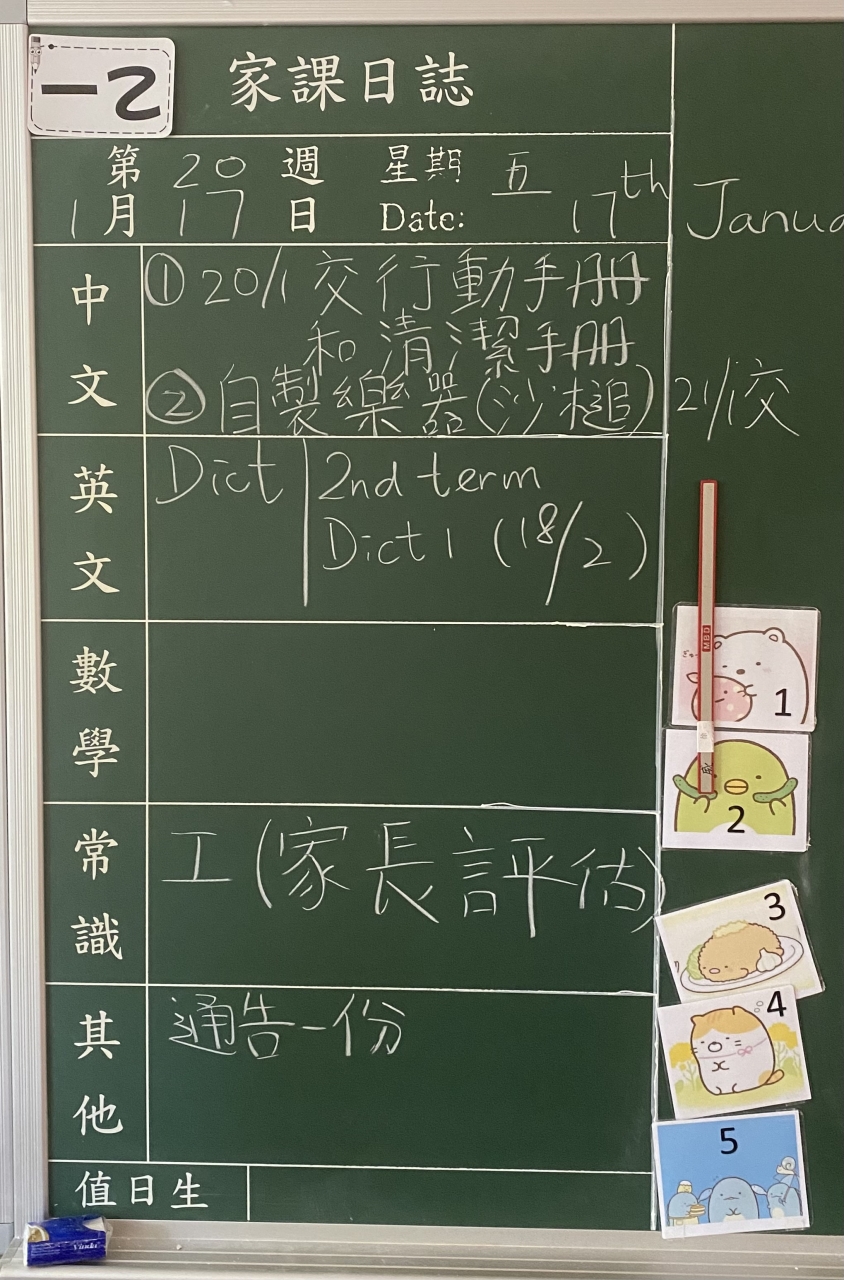 一乙
家課日誌
第 20 週 星期 五
1月 17 日 Date: 17th Janua
中文
① 20/1 交行動手冊
和清潔手冊
② 自製樂器(沙槌) 21/1交
英文
Dict 2nd term
Dict 1 (18/2)
數學
常識
工(家長評估)
其他
通告一份
值日生
MBD
1
2
3
4
5